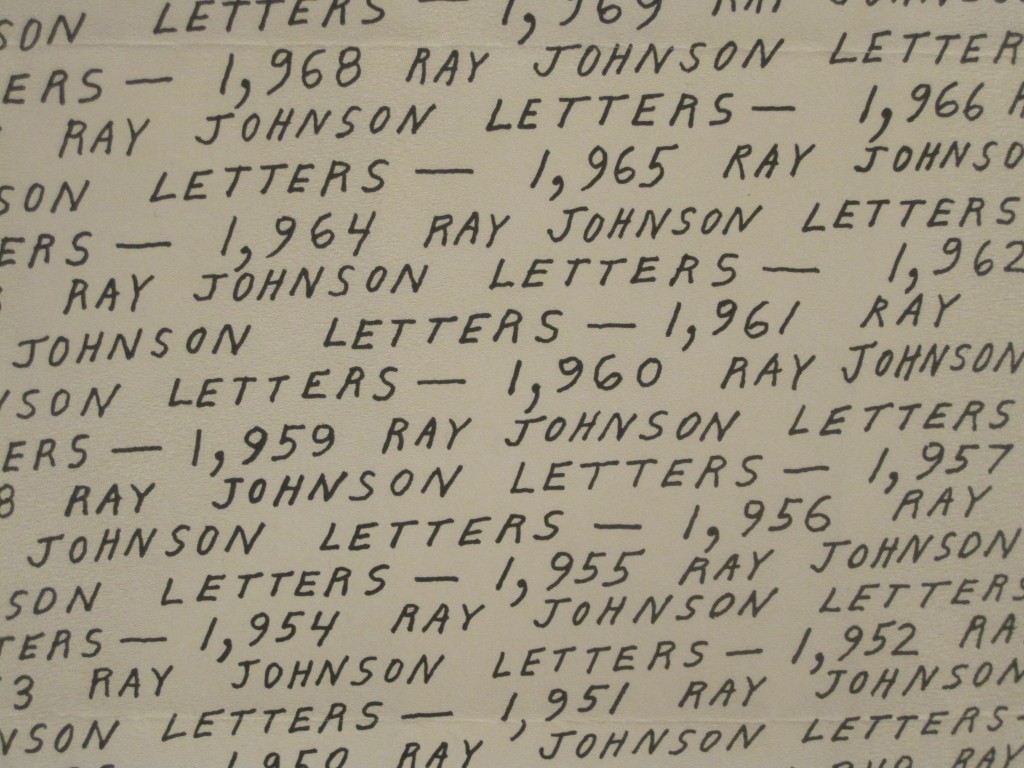 SON LETTERS — 1,969 RAY JOHNSON
ERS — 1,968 RAY JOHNSON LETTER
RAY JOHNSON LETTERS — 1,966 R
SON LETTERS — 1,965 RAY JOHNSO
ERS — 1,964 RAY JOHNSON LETTERS
RAY JOHNSON LETTERS — 1,962
JOHNSON LETTERS — 1,961 RAY
NSON LETTERS — 1,960 RAY JOHNSON
ERS — 1,959 RAY JOHNSON LETTERS
8 RAY JOHNSON LETTERS — 1,957
JOHNSON LETTERS — 1,956 RAY
SON LETTERS — 1,955 RAY JOHNSON
TERS — 1,954 RAY JOHNSON LETTERS
3 RAY JOHNSON LETTERS — 1,952 RA
NSON LETTERS — 1,951 RAY JOHNSON
1,950 RAY JOHNSON LETTERS-
RAY